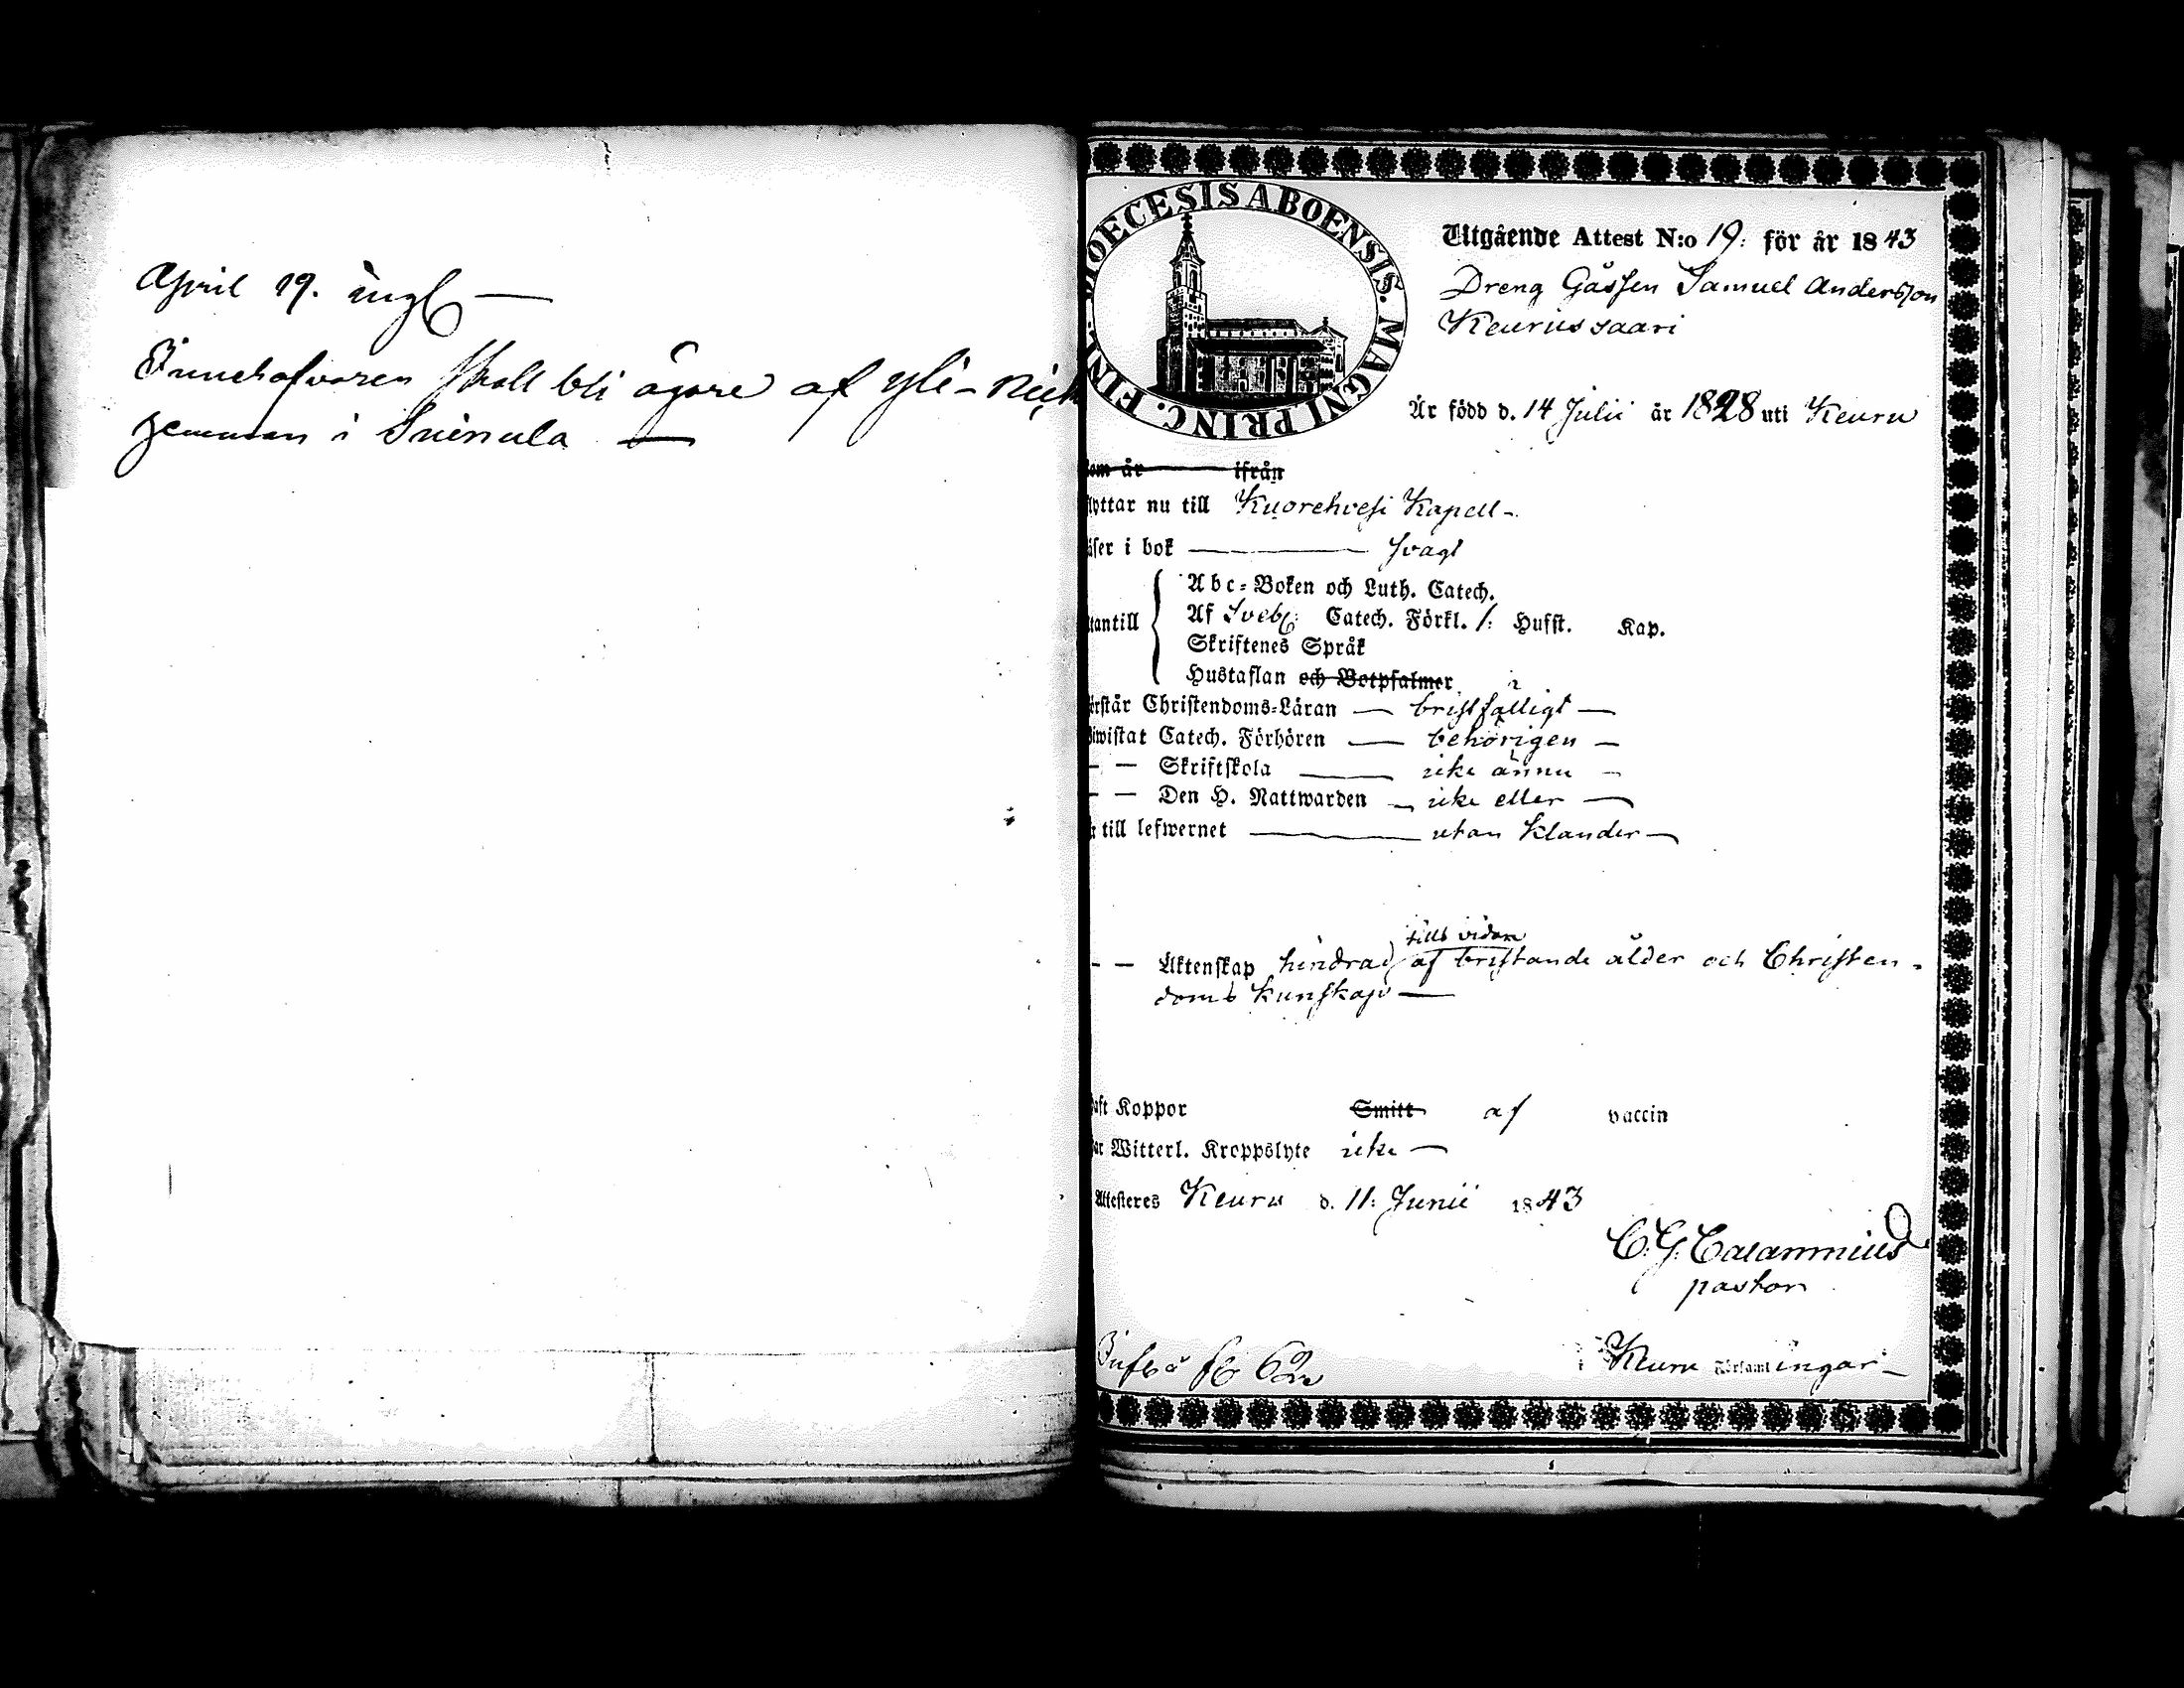 April 19. ingl —
Innehafvaren skall bli ägare af Yli-
hemman i Suinula —
DIOECESIS ABOENSIS. MAGNI PRINC. FINL.
Utgående Attest N:o 19: för år 1843
Dreng Gåssen Samuel Andersson
Keurussaari
Är född d. 14 Julii år 1828 uti Keuru
kom år ifrån
flyttar nu till Kuorehvesi Kapell -
läser i bok — svagt
Utantill
Abc-Boken och Luth. Catech.
Af Sveb: Catech. Förkl. /: Husst. Kap.
Skriftenes Språk
Hustaflan och Botpsalmer
förstår Christendoms-Läran — bristfälligt —
Biwistat Catech. Förhören — behörigen —
— — Skriftskola — icke ännu —
— — Den H. Nattwarden — icke eller —
är till lefwernet — utan klander —
tills vidare
— — Äktenskap hindrad af bristande ålder och Christen-
doms kunskap —
haft Koppor Smitt af vaccin
har Witterl. Kroppslyte icke —
Attesteres Keuru d. 11: Junii 1843
C. G. Calamnius
pastor
Keuru Församlingar -
62